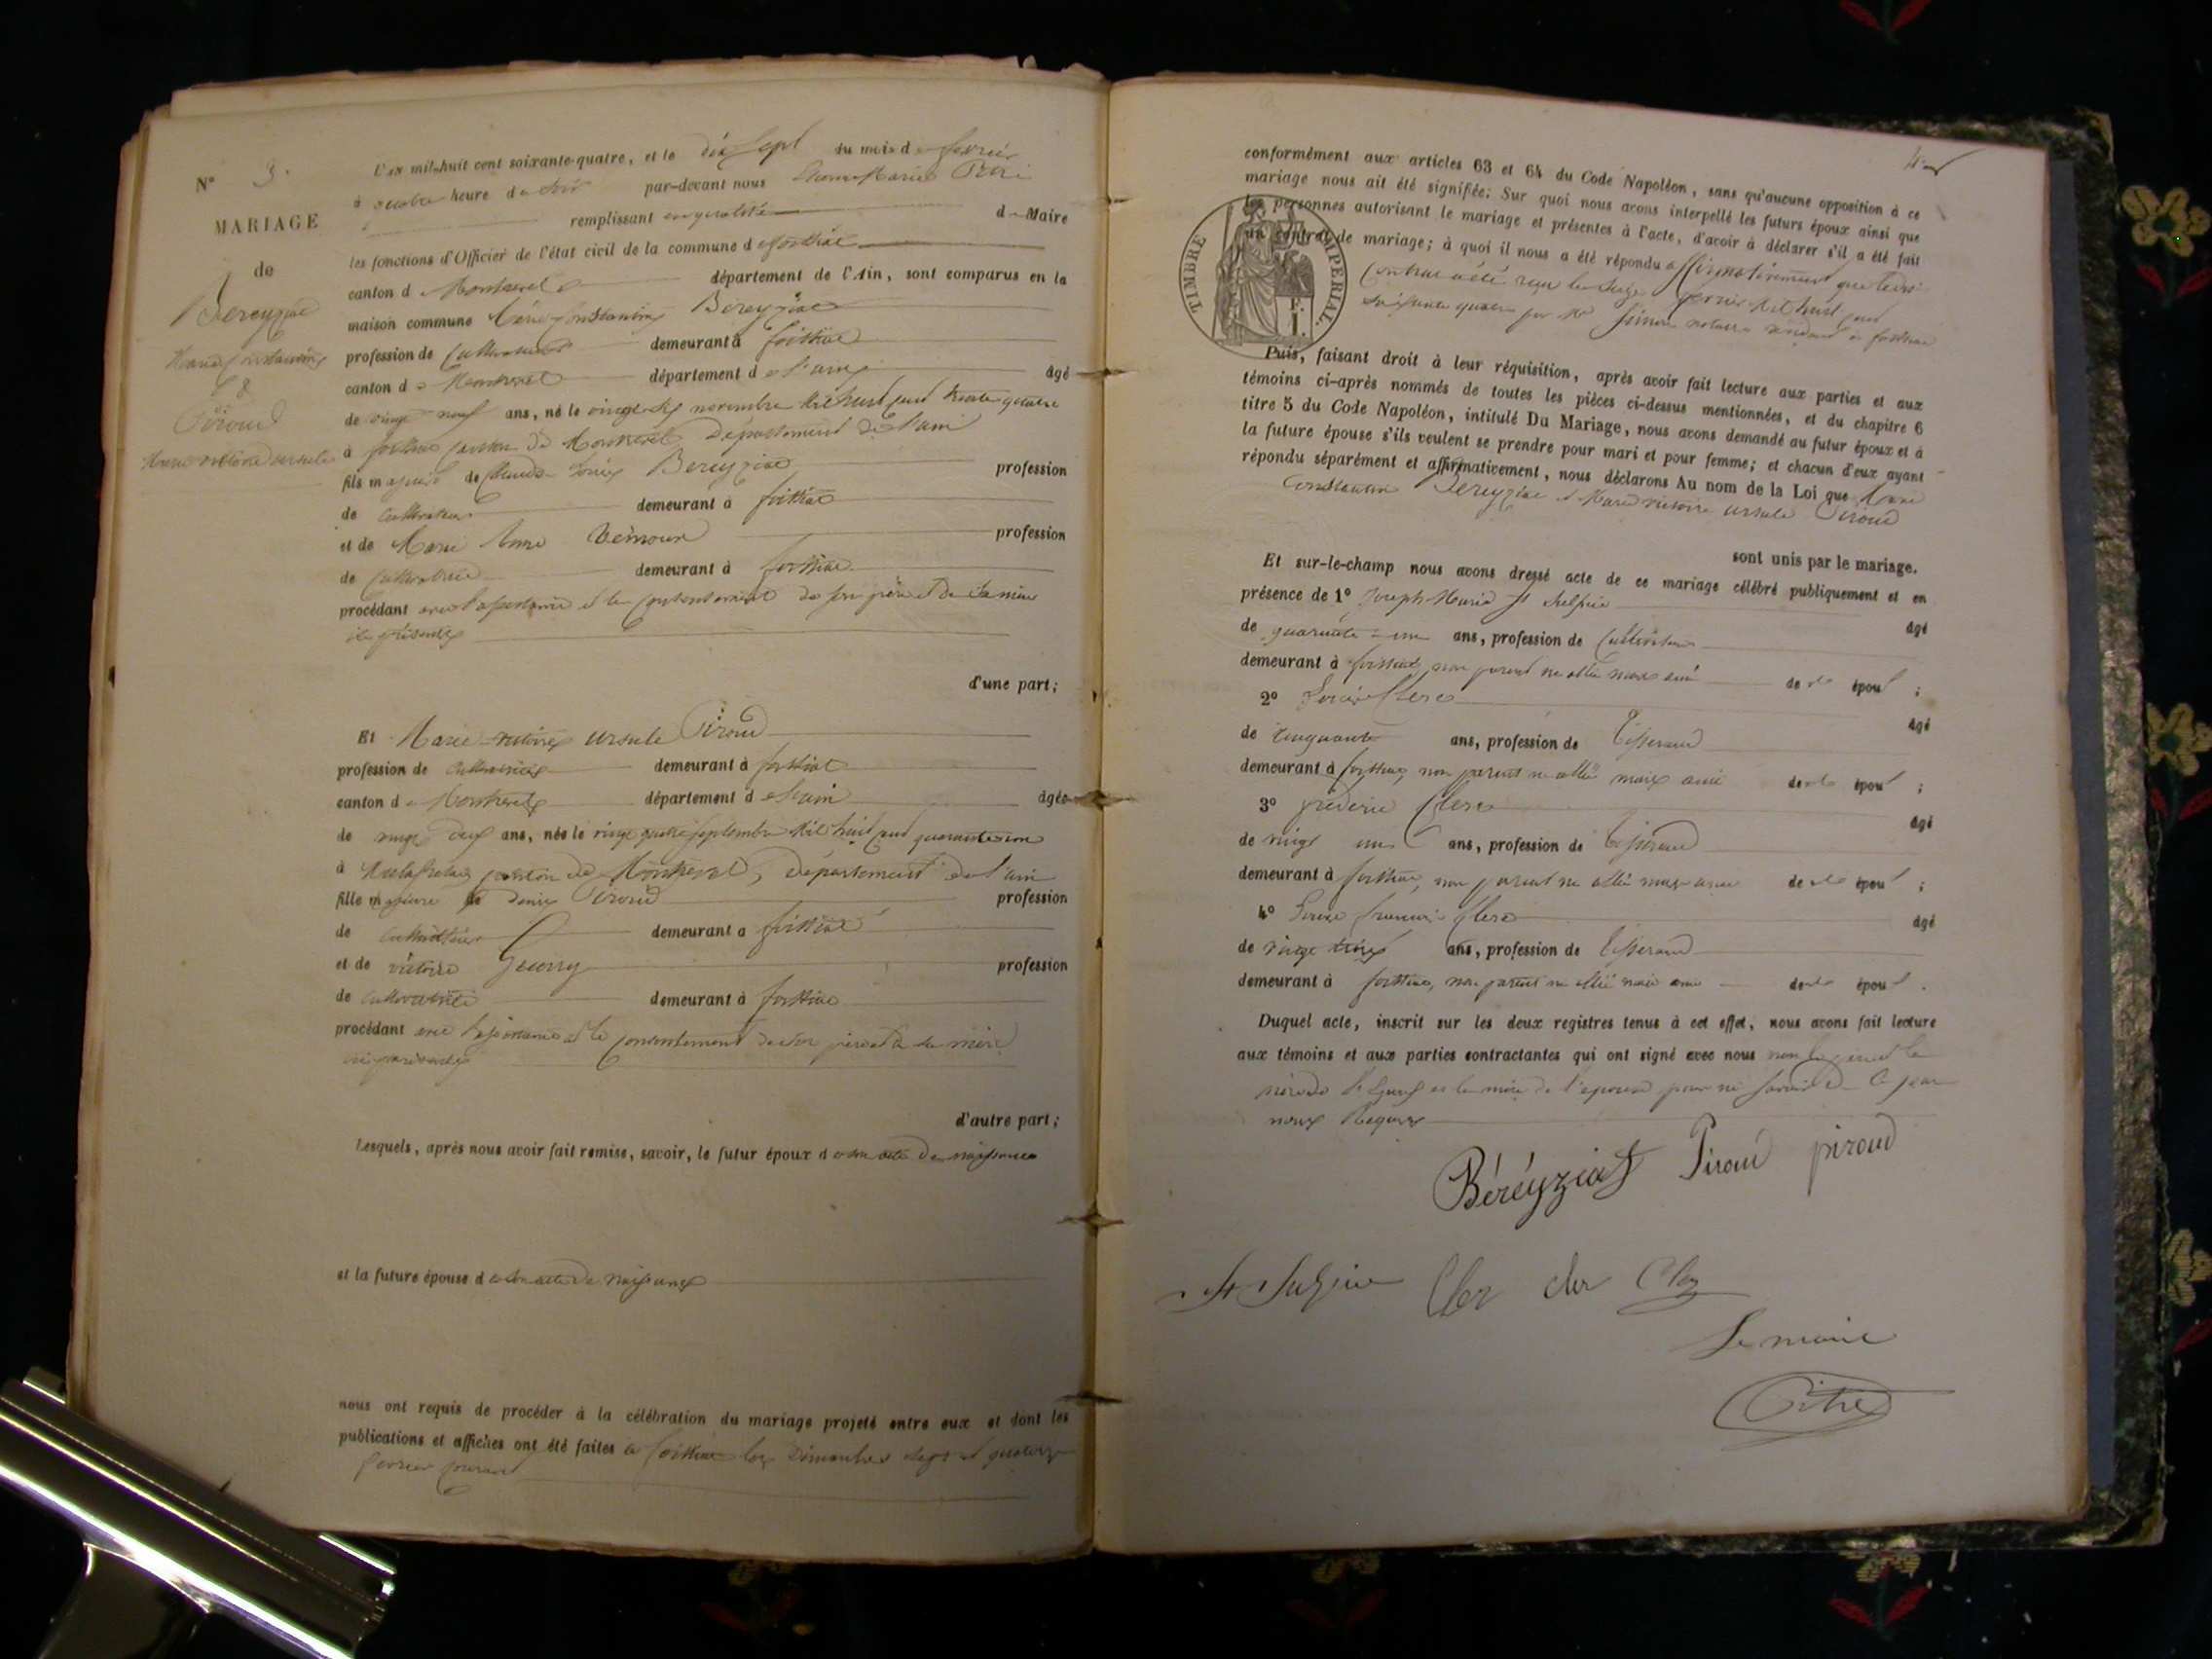 N° 3.
MARIAGE
de
Bereyziat
Marie Constantin
&
Piroud
Marie victoire ursule
L'an mil-huit cent soixante-quatre, et le dix Sept du mois de fevrier
à quatre heure du Soir par-devant nous Marie
remplissant en qualité de Maire
les fonctions d'Officier de l'état civil de la commune de foissiat
canton de Montrevel département de l'Ain, sont comparus en la
maison commune Constantin Bereyziat
profession de Cultivateur demeurant à foissiat
canton de Montrevel département de l'ain âgé
de vingt neuf ans, né le vingt six novembre Mil huit cent trente quatre
à foissiat canton de Montrevel Département de l'ain
fils majeur de Claude Bereyziat profession
de cultivateur demeurant à foissiat
et de Marie profession
de Cultivatrice demeurant à foissiat
procédant avec l'assistance et le consentement de son père et de sa mère
ici présents
d'une part;
Et Marie victoire ursule Piroud
profession de Cultivatrice demeurant à foissiat
canton de Montrevel département de l'ain âgée
de vingt deux ans, née le vingt quatre septembre Mil huit cent quarante et un
à Malafretaz canton de Montrevel, Département de l'ain
fille majeure de Denis Piroud profession
de cultivateur demeurant à foissiat
et de victoire profession
de cultivatrice demeurant à foissiat
procédant avec l'assistance et le consentement de son père et de sa mère
ici présents
d'autre part;
Lesquels, après nous avoir fait remise, savoir, le futur époux de son acte de naissance
et la future épouse de son acte de naissance
nous ont requis de procéder à la célébration du mariage projeté entre eux et dont les
publications et affiches ont été faites à foissiat les Dimanches sept et quatorze
fevrier courant
conformément aux articles 63 et 64 du Code Napoléon, sans qu'aucune opposition à ce
mariage nous ait été signifiée: Sur quoi nous avons interpellé les futurs époux ainsi que
les personnes autorisant le mariage et présentes à l'acte, d'avoir à déclarer s'il a été fait
un contrat de mariage; à quoi il nous a été répondu affirmativement que ledit
Contrat a été reçu le Mil huit cent
Soixante quatre par Me notaire résidant à foissiat
TIMBRE IMPERIAL.
F.
1.
Puis, faisant droit à leur réquisition, après avoir fait lecture aux parties et aux
témoins ci-après nommés de toutes les pièces ci-dessus mentionnées, et du chapitre 6
titre 5 du Code Napoléon, intitulé Du Mariage, nous avons demandé au futur époux et à
la future épouse s'ils veulent se prendre pour mari et pour femme; et chacun d'eux ayant
répondu séparément et affirmativement, nous déclarons Au nom de la Loi que Marie
Constantin Bereyziat et Marie victoire ursule Piroud
sont unis par le mariage.
Et sur-le-champ nous avons dressé acte de ce mariage célébré publiquement et en
présence de 1° Joseph Marie St Sulpice âgé
de quarante un ans, profession de Cultivateur
demeurant à foissiat, non parent ni allié mais ami de époux ;
2° Louis Clerc âgé
de cinquante ans, profession de Tisserand
demeurant à foissiat, non parent ni allié mais ami de époux ;
3° frederic Clerc âgé
de vingt un ans, profession de Tisserand
demeurant à foissiat, non parent ni allié mais ami de époux ;
4° Louis françois Clerc âgé
de vingt trois ans, profession de Tisserand
demeurant à foissiat, non parent ni allié mais ami de époux .
Duquel acte, inscrit sur les deux registres tenus à cet effet, nous avons fait lecture
aux témoins et aux parties contractantes qui ont signé avec nous non le père et la
mère de l'époux et la mère de l'epouse pour ne savoir de ce par
nous Requis
Béréyziat Piroud piroud
St Sulpice Cler cler Cler
Le maire